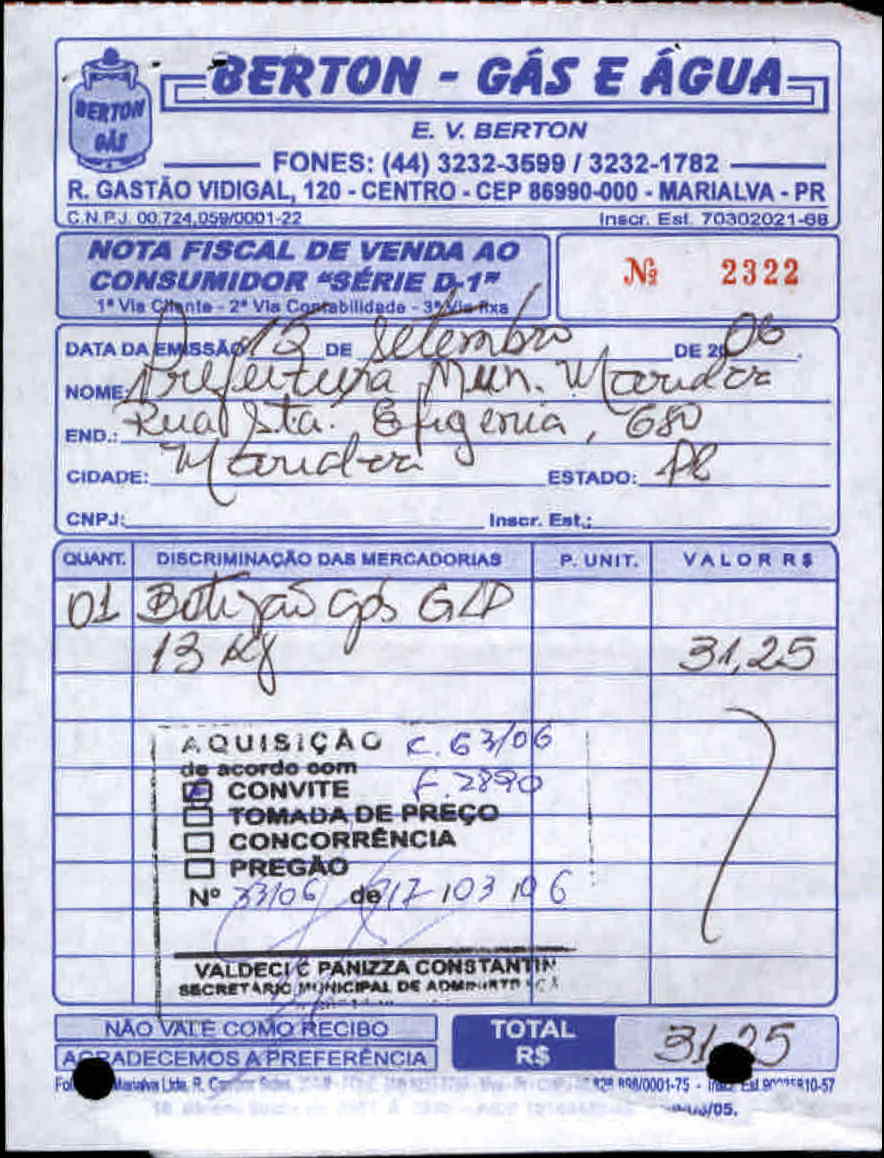 BERTON GÁS
BERTON - GÁS E ÁGUA
E. V. BERTON
FONES: (44) 3232-3599 / 3232-1782
R. GASTÃO VIDIGAL, 120 - CENTRO - CEP 86990-000 - MARIALVA - PR
C.N.P.J. 00.724.059/0001-22 Inscr. Est. 70302021-68
NOTA FISCAL DE VENDA AO
CONSUMIDOR "SÉRIE D-1"
Nº 2322
1ª Via Cliente - 2ª Via Contabilidade - 3ª Via fixa
DATA DA EMISSÃO 13 DE Setembro DE 2006
NOME: Prefeitura Mun.
END.: Rua Sta. Efigenia, 680
CIDADE: ESTADO: PR
CNPJ: Inscr. Est.:
QUANT. DISCRIMINAÇÃO DAS MERCADORIAS P. UNIT. VALOR R$
01 Botijão gás GLP
13 Kg 31,25
AQUISIÇÃO C. 63/06
de acordo com
CONVITE F. 2890
TOMADA DE PREÇO
CONCORRÊNCIA
PREGÃO
Nº 33/06 de 17/03/06
VALDECI C PANIZZA CONSTANTIN
SECRETÁRIO MUNICIPAL DE
NÃO VALE COMO RECIBO
AGRADECEMOS A PREFERÊNCIA
TOTAL R$ 31,25
Marialva Ltda. R. 898/0001-75 -